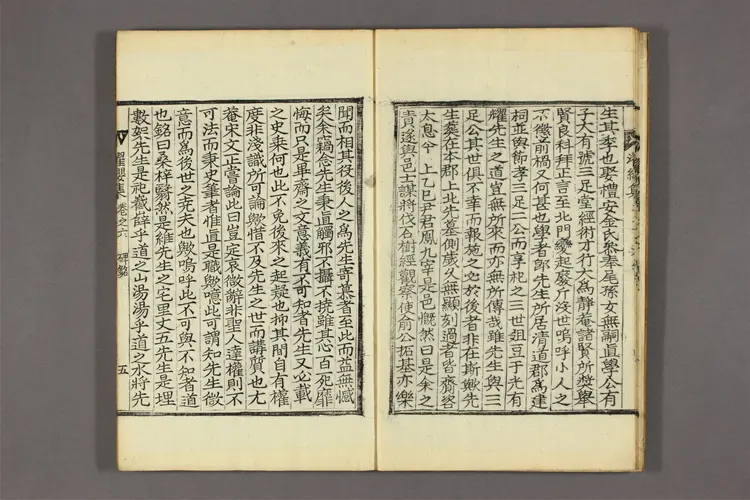 生其季也娶禮安金氏參奉尾孫女無嗣直學公有
子大有號三足堂經術才行大爲靜菴諸賢所奬擧
賢良科拜正言至北門變起廢斥沒世嗚呼小人之
不懲前禍又何甚也學者卽先生所居淸道郡爲建
祠並與節孝三足二公而享祀之三世俎豆于光有
耀先生之道宜無所來而亦無所傳哉雖先生與三
足公其世俱不幸而報施之必於後者非在斯歟先
生葬在本郡上北先墓側歲久無顯刻過者皆齎咨
太息今上乙巳尹君鳳九宰是邑慨然曰是余之
責遂與邑士謀將伐石樹經觀察使前公拓基亦樂
聞而相其役後人之爲先生寄慕者至此而益無憾
矣朱竊念先生秉直觸邪不攝不撓雖其心百死靡
悔而只是畢齋之文意義有不可知者先生又必載
之史乘何也此不免後來之起疑也抑其間自有權
度非淺識所可論歟惜不及先生之世而講質也尤
菴宋文正嘗論此曰豈定哀微辭非聖人達權則不
可法而秉史筆者惟直是職歟噫此可謂知先生微
意而爲後世之堯夫也歟嗚呼此不可與不知者道
也銘曰桑梓翳然是維先生之宅里丈五先生是埋
數笏先生是祀巀嶭乎道之山湯湯乎道之水將先
濯纓集 卷之六 碑銘 五